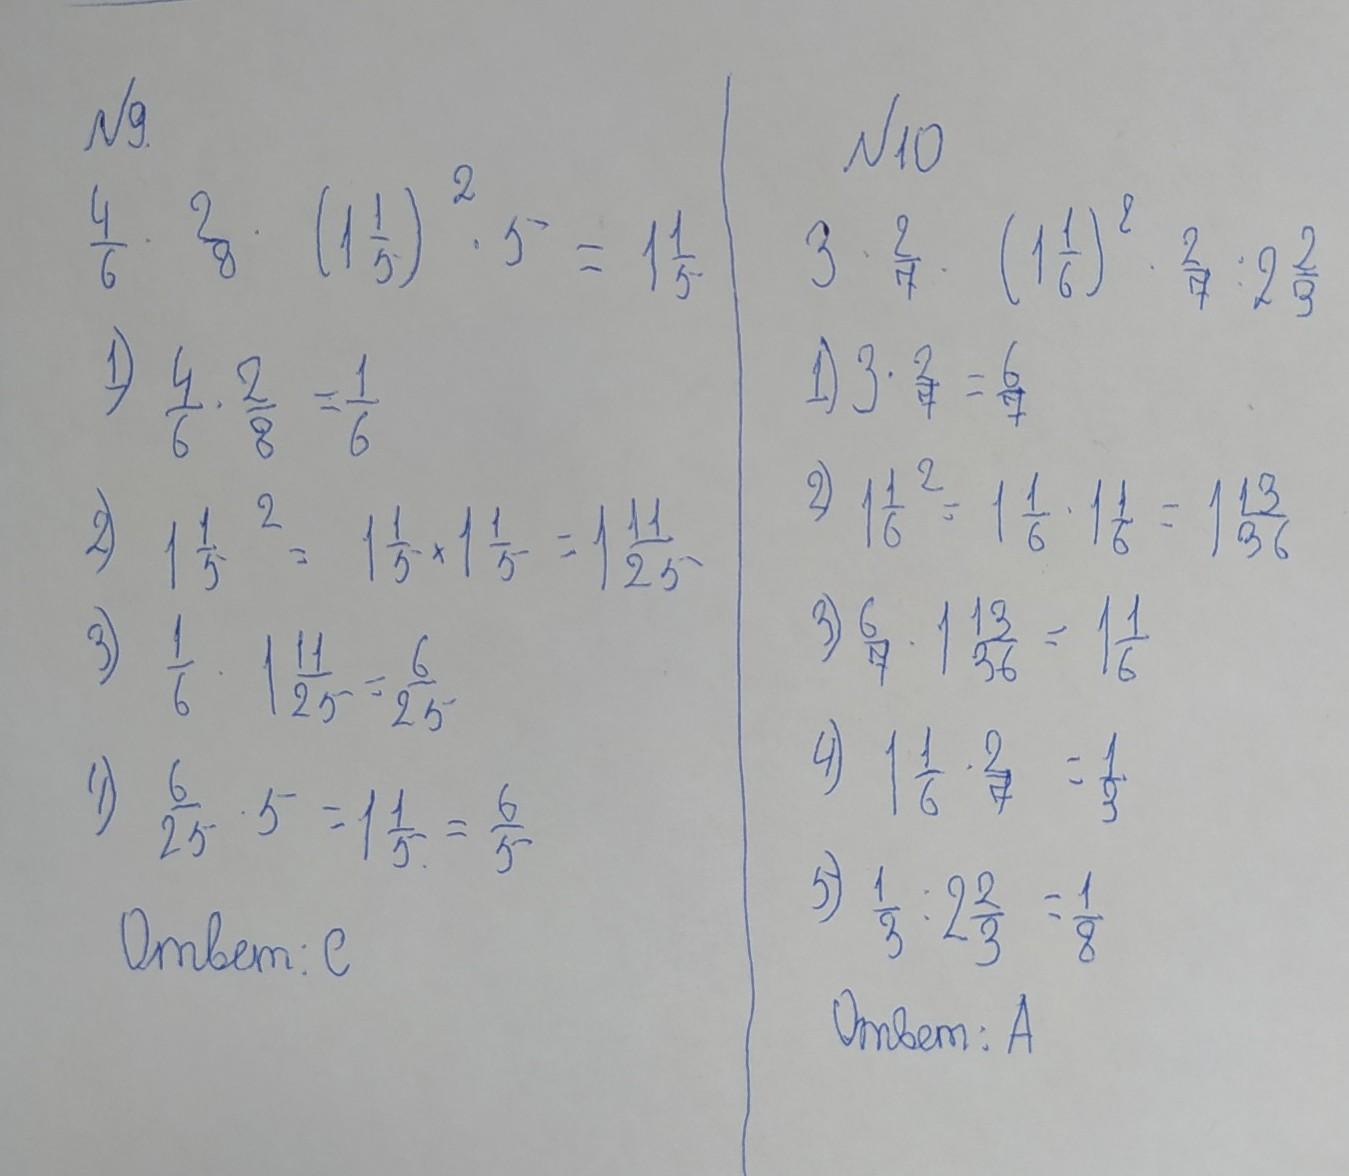 №9.
4/6 · 2/8 · (1 1/5)² · 5 = 1 1/5
1) 4/6 · 2/8 = 1/6
2) 1 1/5 ² = 1 1/5 × 1 1/5 = 1 11/25
3) 1/6 · 1 11/25 = 6/25
4) 6/25 · 5 = 1 1/5 = 6/5
Ответ: С
№10
3 · 2/7 · (1 1/6)² · 2/7 : 2 2/3
1) 3 · 2/7 = 6/7
2) 1 1/6 ² = 1 1/6 · 1 1/6 = 1 13/36
3) 6/7 · 1 13/36 = 1 1/6
4) 1 1/6 · 2/7 = 1/3
5) 1/3 : 2 2/3 = 1/8
Ответ: А